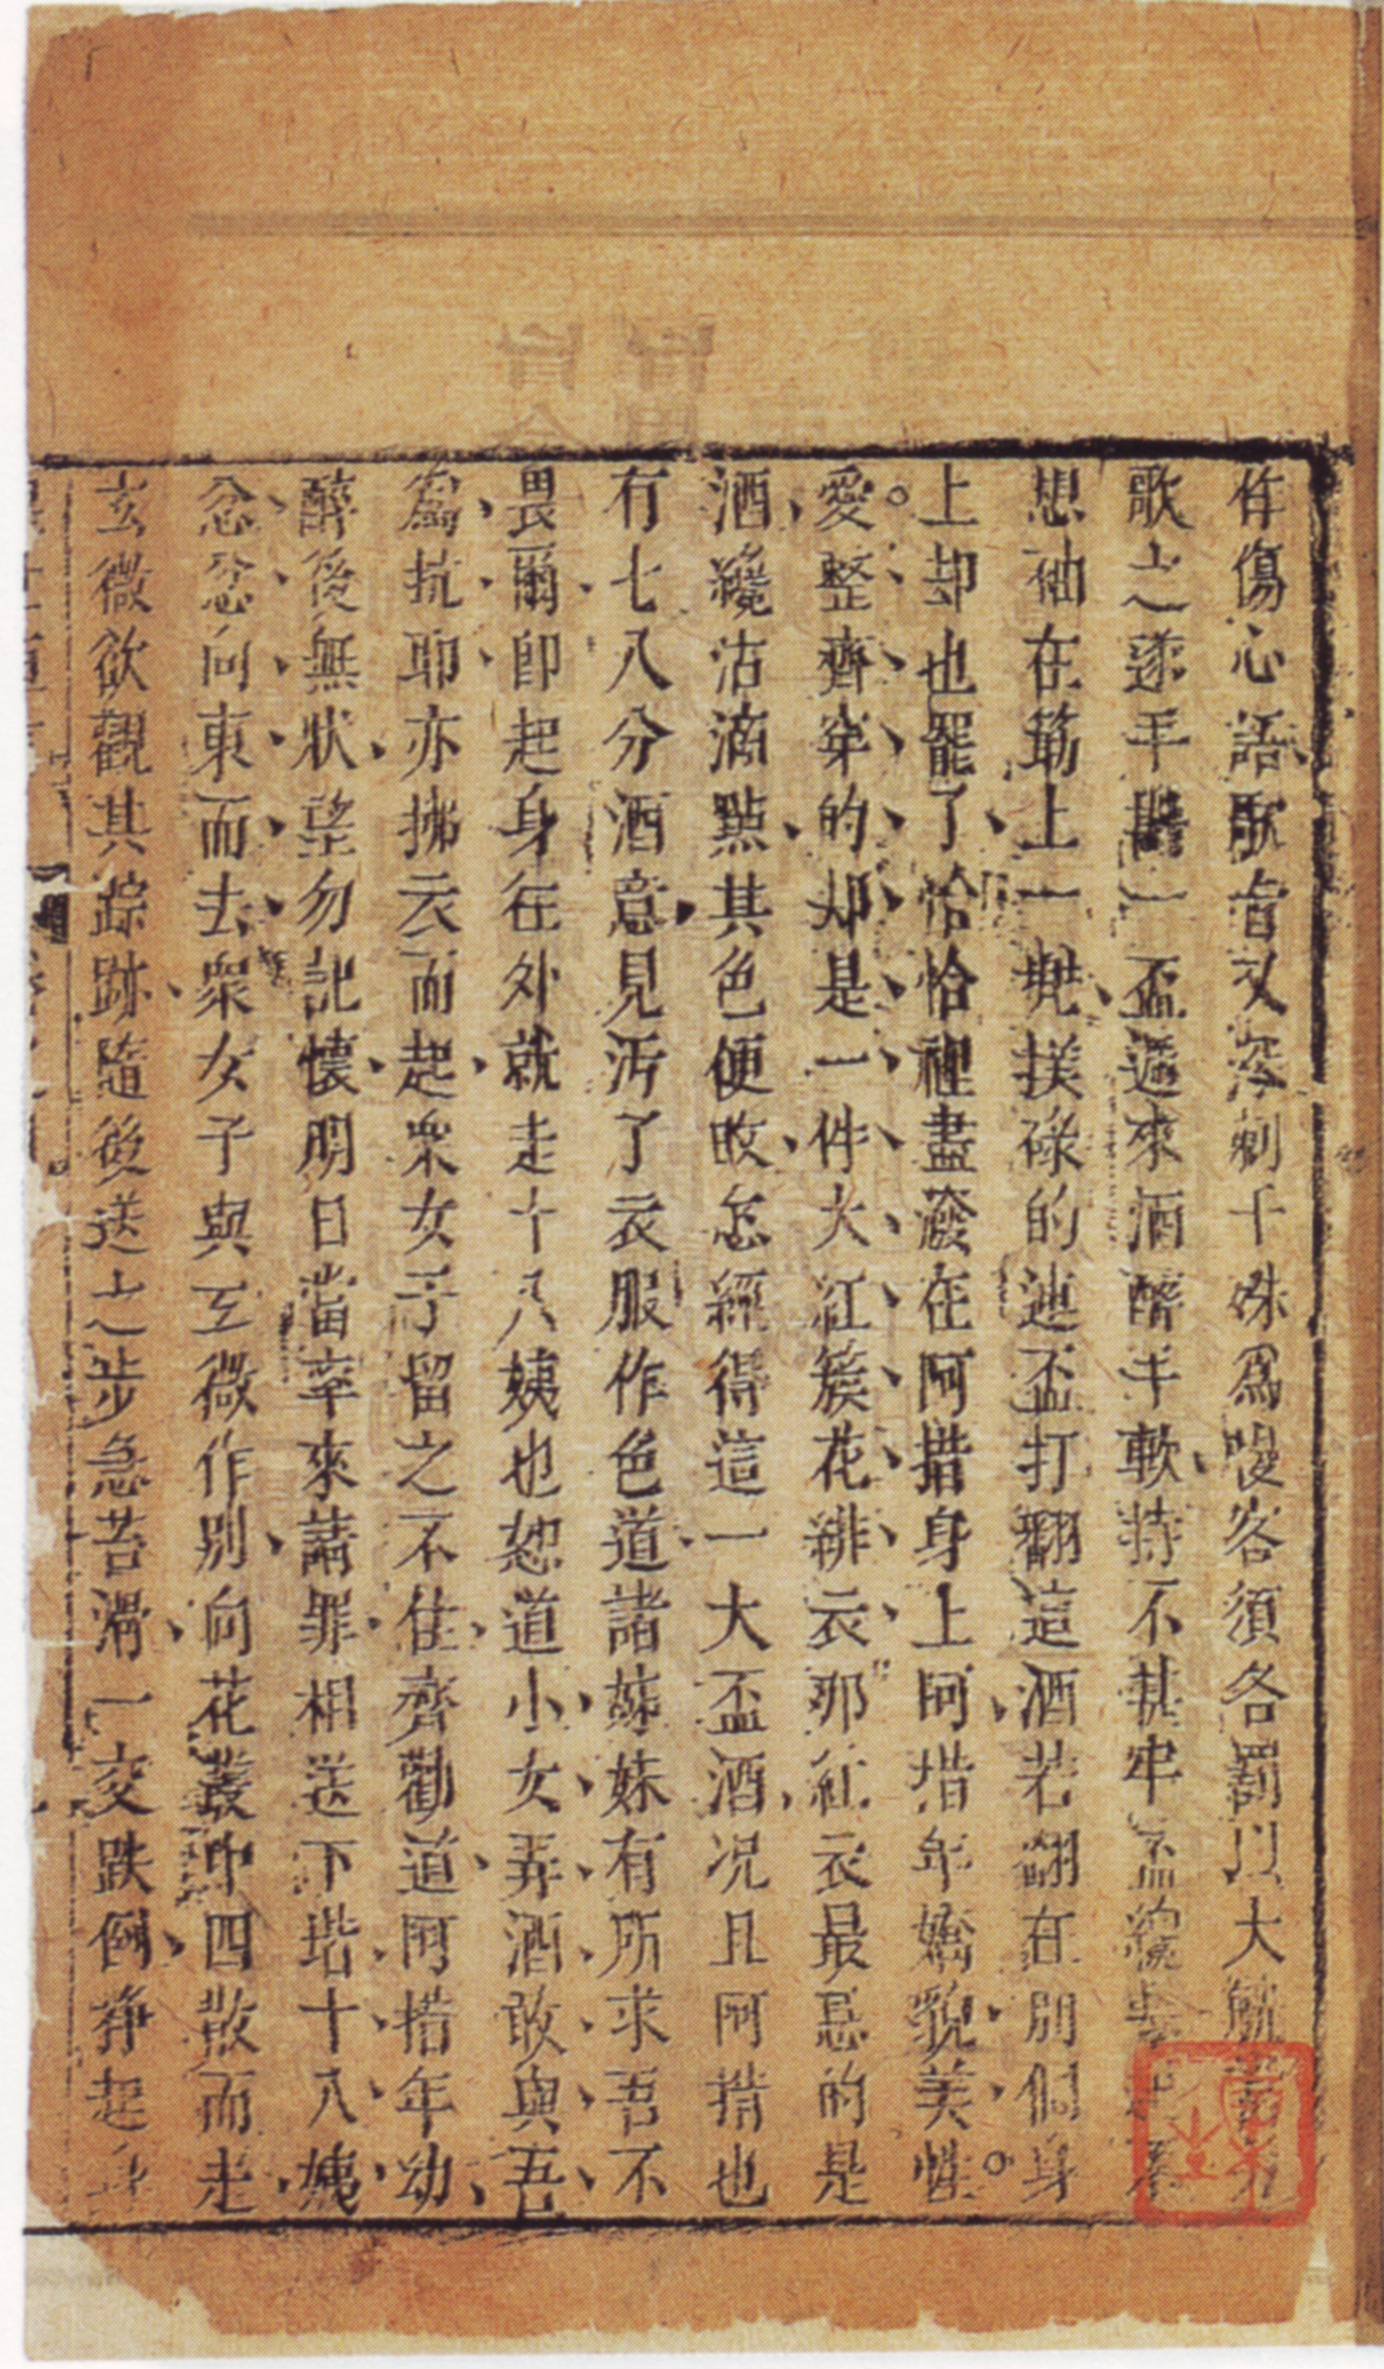 作傷心語歌旨又深刺十姝爲慢客須各罰以大觥當另
歌之遂手斟一盃遞來酒醉手軟持不甚牢盃纔
想袖在筯上一兜撲碌的連盃打翻這酒若翻在別個身
上却也罷了恰恰裡盡潑在阿措身上阿措年嬌貌美性
愛整齊穿的却是一件大紅簇花緋衣那紅衣最忌的是
酒纔沾滴點其色便改怎經得這一大盃酒况且阿措也
有七八分酒意見汚了衣服作色道諸姊妹有所求吾不
畏爾卽起身往外就走十八姨也怒道小女弄酒敢與吾
爲抗耶亦拂衣而起衆女子留之不住齊勸道阿措年幼
醉後無狀望勿記懷明日當率來請罪相送下堦十八姨
忿忿向東而去衆女子與玄微作別向花叢中四散而走
玄微欲觀其踪跡隨後送之步急苔滑一交跌倒掙起身